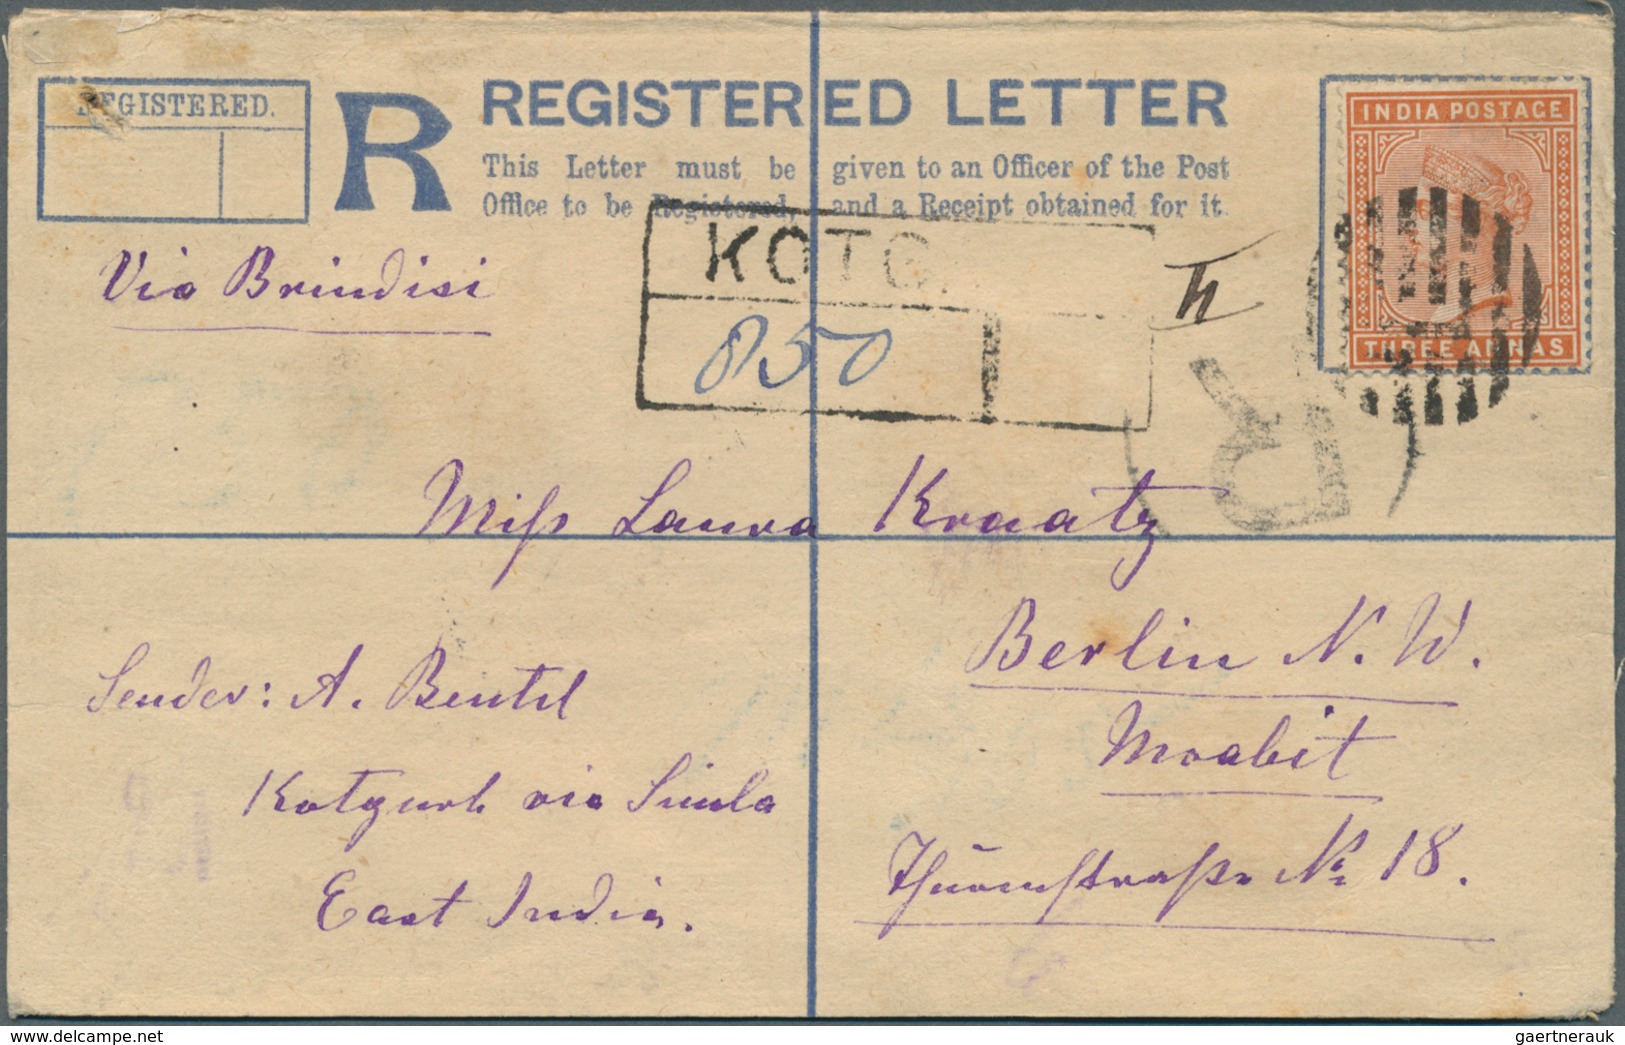 REGISTERED.
R
REGISTERED LETTER
This Letter must be given to an Officer of the Post
Office to be Registered, and a Receipt obtained for it.
INDIA POSTAGE
THREE ANNAS
Via Brindisi
KOTG
850
R
Miss Laura Kraatz
Berlin N. W.
Moabit
Thurmstrasse No 18.
Sender: A. Beutel
Kotgurh via Simla
East India.
delcampe.net
gaertnerauk